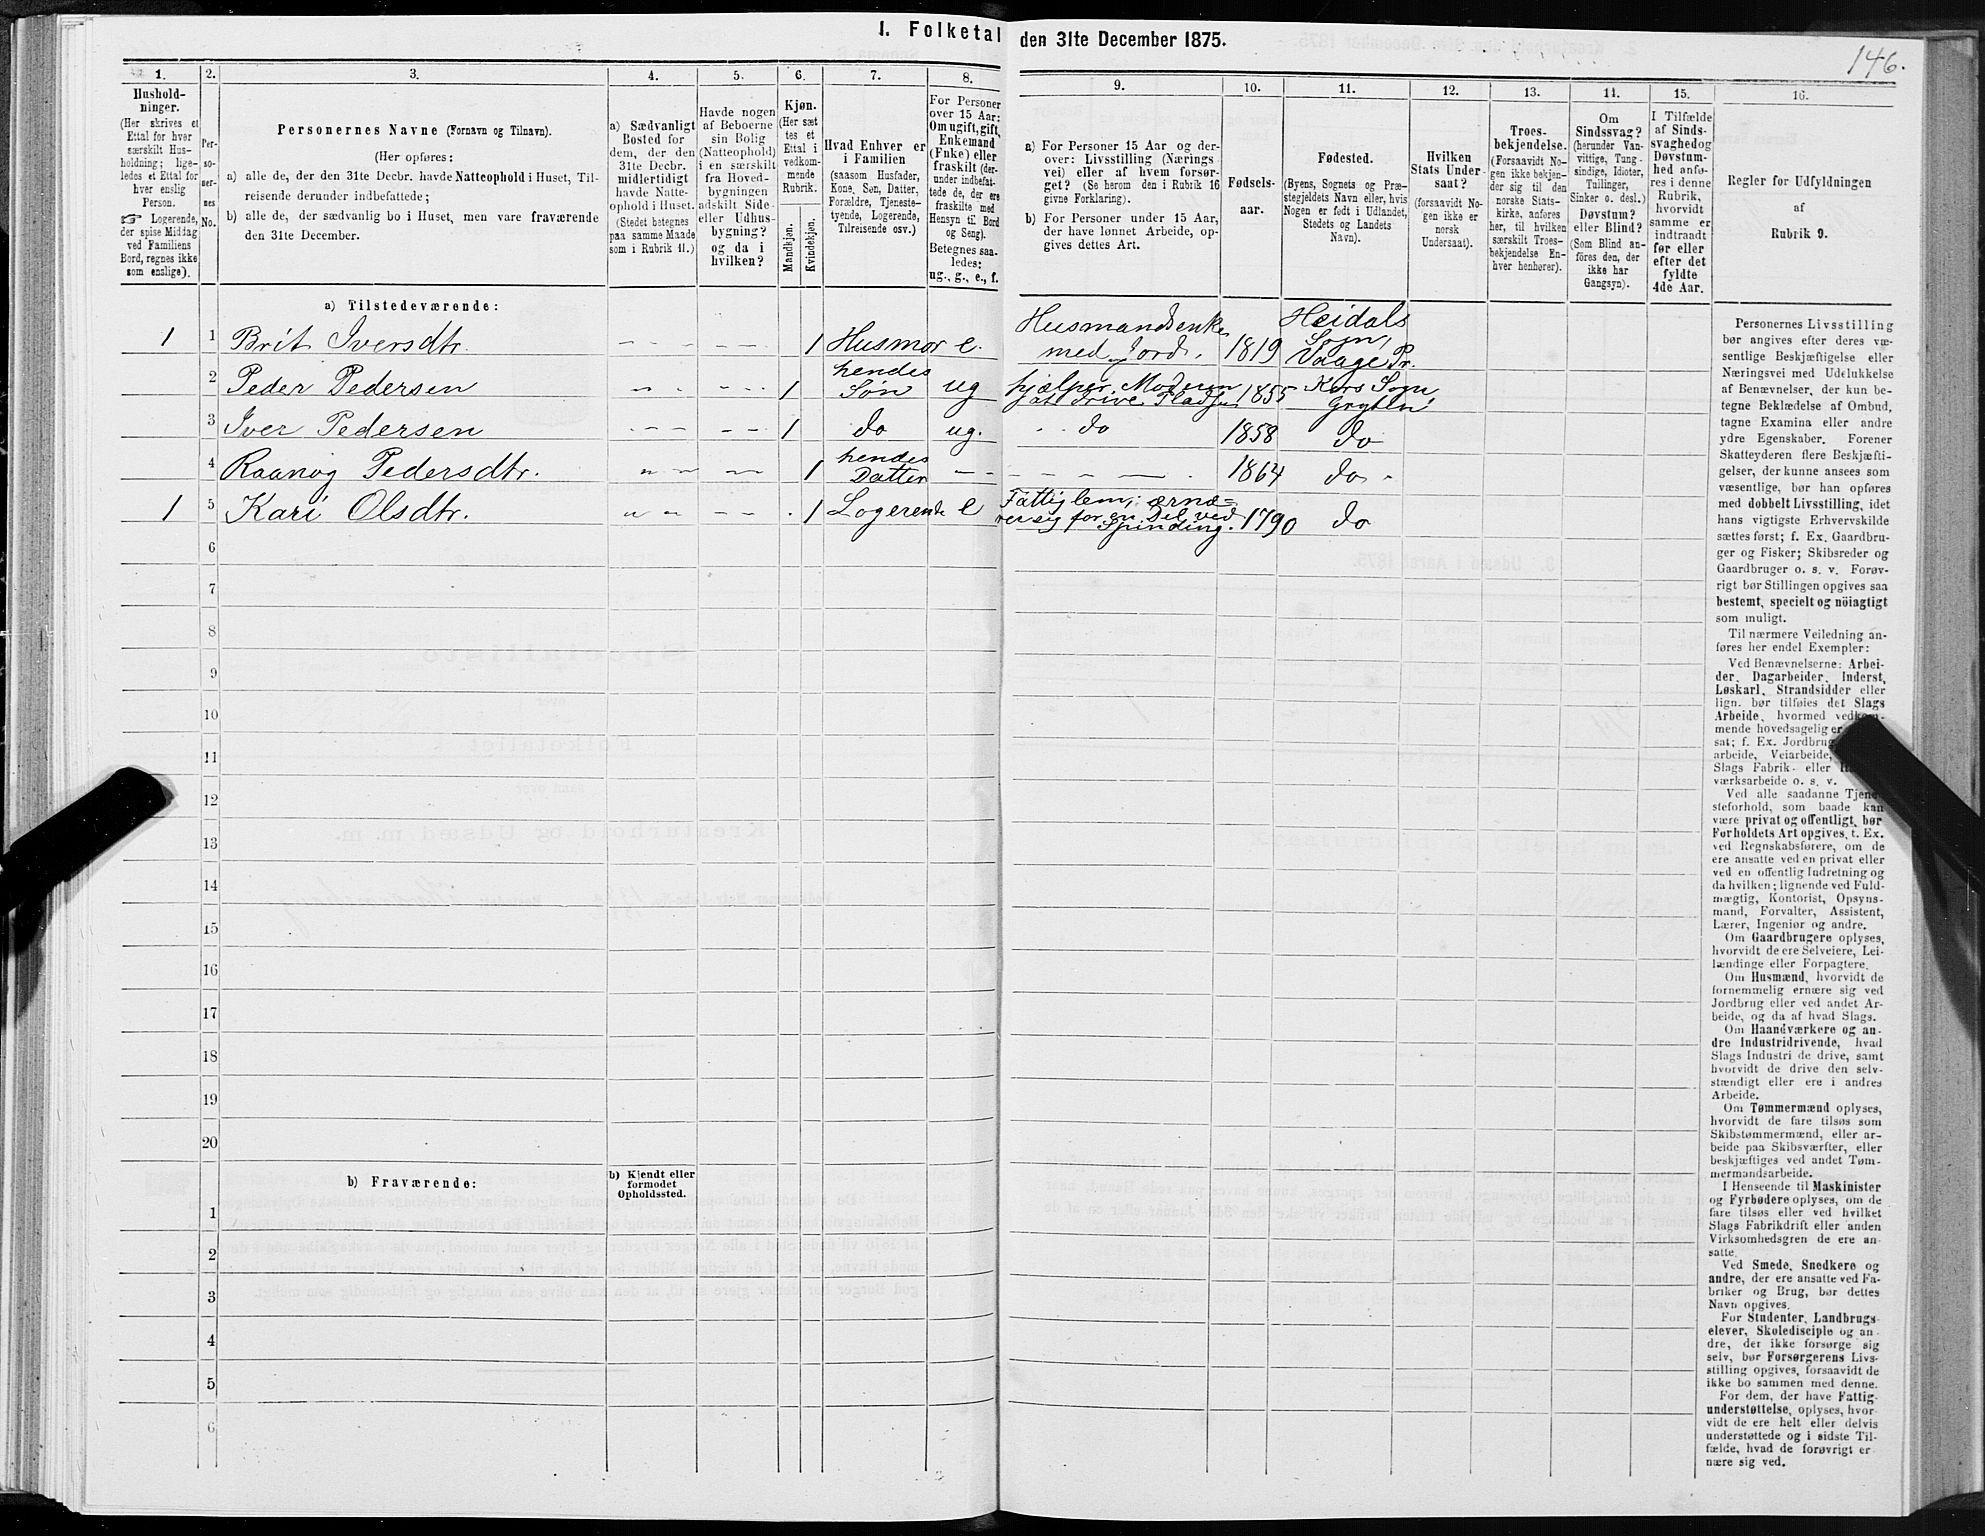 1. Folketal den 31te December 1875.
146.
1.
Hushold-
ninger.
(Her skrives et
Ettal for hver
særskilt Hus-
holdning; lige-
ledes et Ettal for
hver enslig
Person.
☞ Logerende,
der spise Middag
ved Familiens
Bord, regnes ikke
som enslige).
2.
Per-
so-
ner-
nes
No.
3.
Personernes Navne (Fornavn og Tilnavn).
(Her opføres:
a) alle de, der den 31te Decbr. havde Natteophold i Huset, Til-
reisende derunder indbefattede;
b) alle de, der sædvanlig bo i Huset, men vare fraværende
den 31te December.
4.
a) Sædvanligt
Bosted for
dem, der den
31te Decbr.
midlertidigt
havde Natte-
ophold i Huset.
(Stedet betegnes
paa samme Maade
som i Rubrik 11.)
5.
Havde nogen
af Beboerne
sin Bolig
(Natteophold)
i en særskilt
fra Hoved-
bygningen
adskilt Side-
eller Udhus-
bygning?
og da i
hvilken?
6.
Kjøn.
(Her sæt-
tes et
Ettal i
vedkom-
mende
Rubrik.
Mandkjøn.
Kvindekjøn.
7.
Hvad Enhver er
i Familien
(saasom Husfader,
Kone, Søn, Datter,
Forældre, Tjeneste-
tyende, Logerende,
Tilreisende osv.)
8.
For Personer
over 15 Aar:
Om ugift, gift,
Enkemand
(Enke) eller
fraskilt (der-
under indbefat-
tede de, der ere
fraskilte med
Hensyn til Bord
og Seng).
Betegnes saa-
ledes:
ug., g., e., f.
9.
a) For Personer 15 Aar og der-
over: Livsstilling (Nærings-
vei) eller af hvem forsør-
get? (Se herom den i Rubrik 16
givne Forklaring).
b) For Personer under 15 Aar,
der have lønnet Arbeide, op-
gives dettes Art.
10.
Fødsels-
aar.
11.
Fødested.
(Byens, Sognets og Præ-
stegjeldets Navn eller, hvis
Nogen er født i Udlandet,
Stedets og Landets
Navn).
12.
Hvilken
Stats Under-
saat?
(forsaavidt No-
gen ikke er
norsk
Undersaat).
13.
Troes-
bekjendelse.
(Forsaavidt No-
gen ikke bekjen-
der sig til den
norske Stats-
kirke, anføres
her, til hvilken
særskilt Troes-
bekjendelse En-
hver henhører).
14.
Om
Sindssvag?
(herunder Van-
vittige, Tung-
sindige, Idioter,
Tullinger,
Sinker o. desl.)
Døvstum?
eller Blind?
(Som Blind an-
føres den, der
ikke har
Gangsyn).
15.
I Tilfælde
af Sinds-
svaghed og
Døvstum-
hed anfø-
res i denne
Rubrik,
hvorvidt
samme er
indtraadt
før eller
efter det
fyldte
4de Aar.
16.
Regler for Udfyldningen
af
Rubrik 9.
a) Tilstedeværende:
1 1 Brit Iversdtr. 1 Husmor e. Husmandsenke med Jord. 1819 Heidals Sogn, Vaage Pr.
2 Peder Pedersen 1 hendes Søn ug hjælper Moderen at drive Pladsen 1855 Kors Sogn, Grytten
3 Iver Pedersen 1 do ug. do 1858 do
4 Raanog Pedersdtr. 1 hendes Datter 1864 do
1 5 Kari Olsdtr. 1 Logerende e Fattiglem; ernæ= rer sig for en Del ved Spinding. 1790 do
6
7
8
9
10
11
12
13
14
15
16
17
18
19
20
b) Fraværende:
b) Kjendt eller
formodet
Opholdssted.
1
2
3
4
5
6
Personernes Livsstilling
bør angives efter deres væ-
sentlige Beskjæftigelse eller
Næringsvei med Udelukkelse
af Benævnelser, der kun be-
tegne Beklædelse af Ombud,
tagne Examina eller andre
ydre Egenskaber. Forener
Skatteyderen flere Beskjæfti-
gelser, der kunne ansees som
væsentlige, bør han opføres
med dobbelt Livsstilling, idet
hans vigtigste Erhvervskilde
sættes først; f. Ex. Gaardbru-
ger og Fisker; Skibsreder og
Gaardbruger o. s. v. Forøv-
rigt bør Stillingen opgives saa
bestemt, specielt og nöiagtigt
som muligt.
Til nærmere Veiledning an-
føres her endel Exempler:
Ved Benævnelserne: Arbei-
der, Dagarbeider, Inderst,
Løskarl, Strandsidder eller
lign. bør tilføies det Slags
Arbeide, hvormed vedkom-
mende hovedsagelig er
sat; f. Ex. Jordbrug
arbeide, Veiarbeide,
Slags Fabrik- eller
værksarbeide o. s. v.
Ved alle saadanne Tjene-
steforhold, som baade kan
være privat og offentligt, bør
Forholdets Art opgives, t. Ex.
ved Regnskabsførere, om de
ere ansatte ved en privat eller
ved en offentlig Indretning og
da hvilken; lignende ved Fuld-
mægtig, Kontorist, Opsyns-
mand, Forvalter, Assistent,
Lærer, Ingeniør og andre.
Om Gaardbrugere oplyses,
hvorvidt de ere Selveiere, Lei-
lændinge eller Forpagtere.
Om Husmænd, hvorvidt de
fornemmelig ernære sig ved
Jordbrug eller ved andet Ar-
beide, og da af hvad Slags.
Om Haandværkere og an-
dre Industridrivende, hvad
Slags Industri de drive, samt
hvorvidt de drive den selv-
stændigt eller ere i andres
Arbeide.
Om Tømmermænd oplyses,
hvorvidt de fare tilsøs som
Skibstømmermænd, eller ar-
beide paa Skibsværfter, eller
beskjæftiges ved andet Tøm-
mermandsarbeide.
I Henseende til Maskinister
og Fyrbødere oplyses, om de
fare tilsøs eller ved hvilket
Slags Fabrikdrift eller anden
Virksomhedsgren de ere an-
satte.
Ved Smede, Snedkere og
andre, der ere ansatte ved Fa-
briker og Brug, bør dettes
Navn opgives.
For Studenter, Landbrugs-
elever, Skoledisciple og an-
dre, der ikke forsørge sig
selv, bør Forsørgerens Livs-
stilling opgives, forsaavidt de
ikke bo sammen med denne.
For dem, der have Fattig-
understøttelse, oplyses, hvor-
vidt de ere helt eller delvis
understøttede og i sidste Til-
fælde, hvad de forøvrigt er-
nære sig ved.